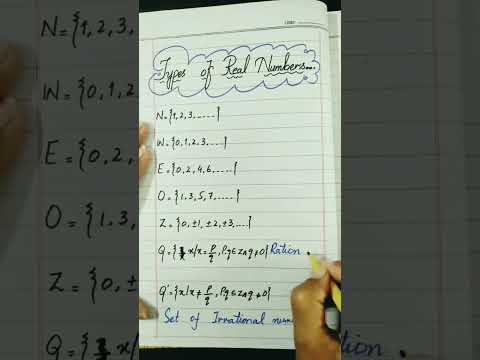 Types of Real Numbers...
N={1,2,3,.....}
W={0,1,2,3....}
E={0,2,4,6,....}
O={1,3,5,7,.....}
Z={0,±1,±2,±3,....}
Q={x/x=P/q,P,q∈Z∧q≠0} Ration
Q'={x/x≠P/q,P,q∈Z∧q≠0}
Set of Irrational num
N={1,2,3,
W={0,1,2
E={0,2,
O={1,3,
Z={0,±
Q={x/